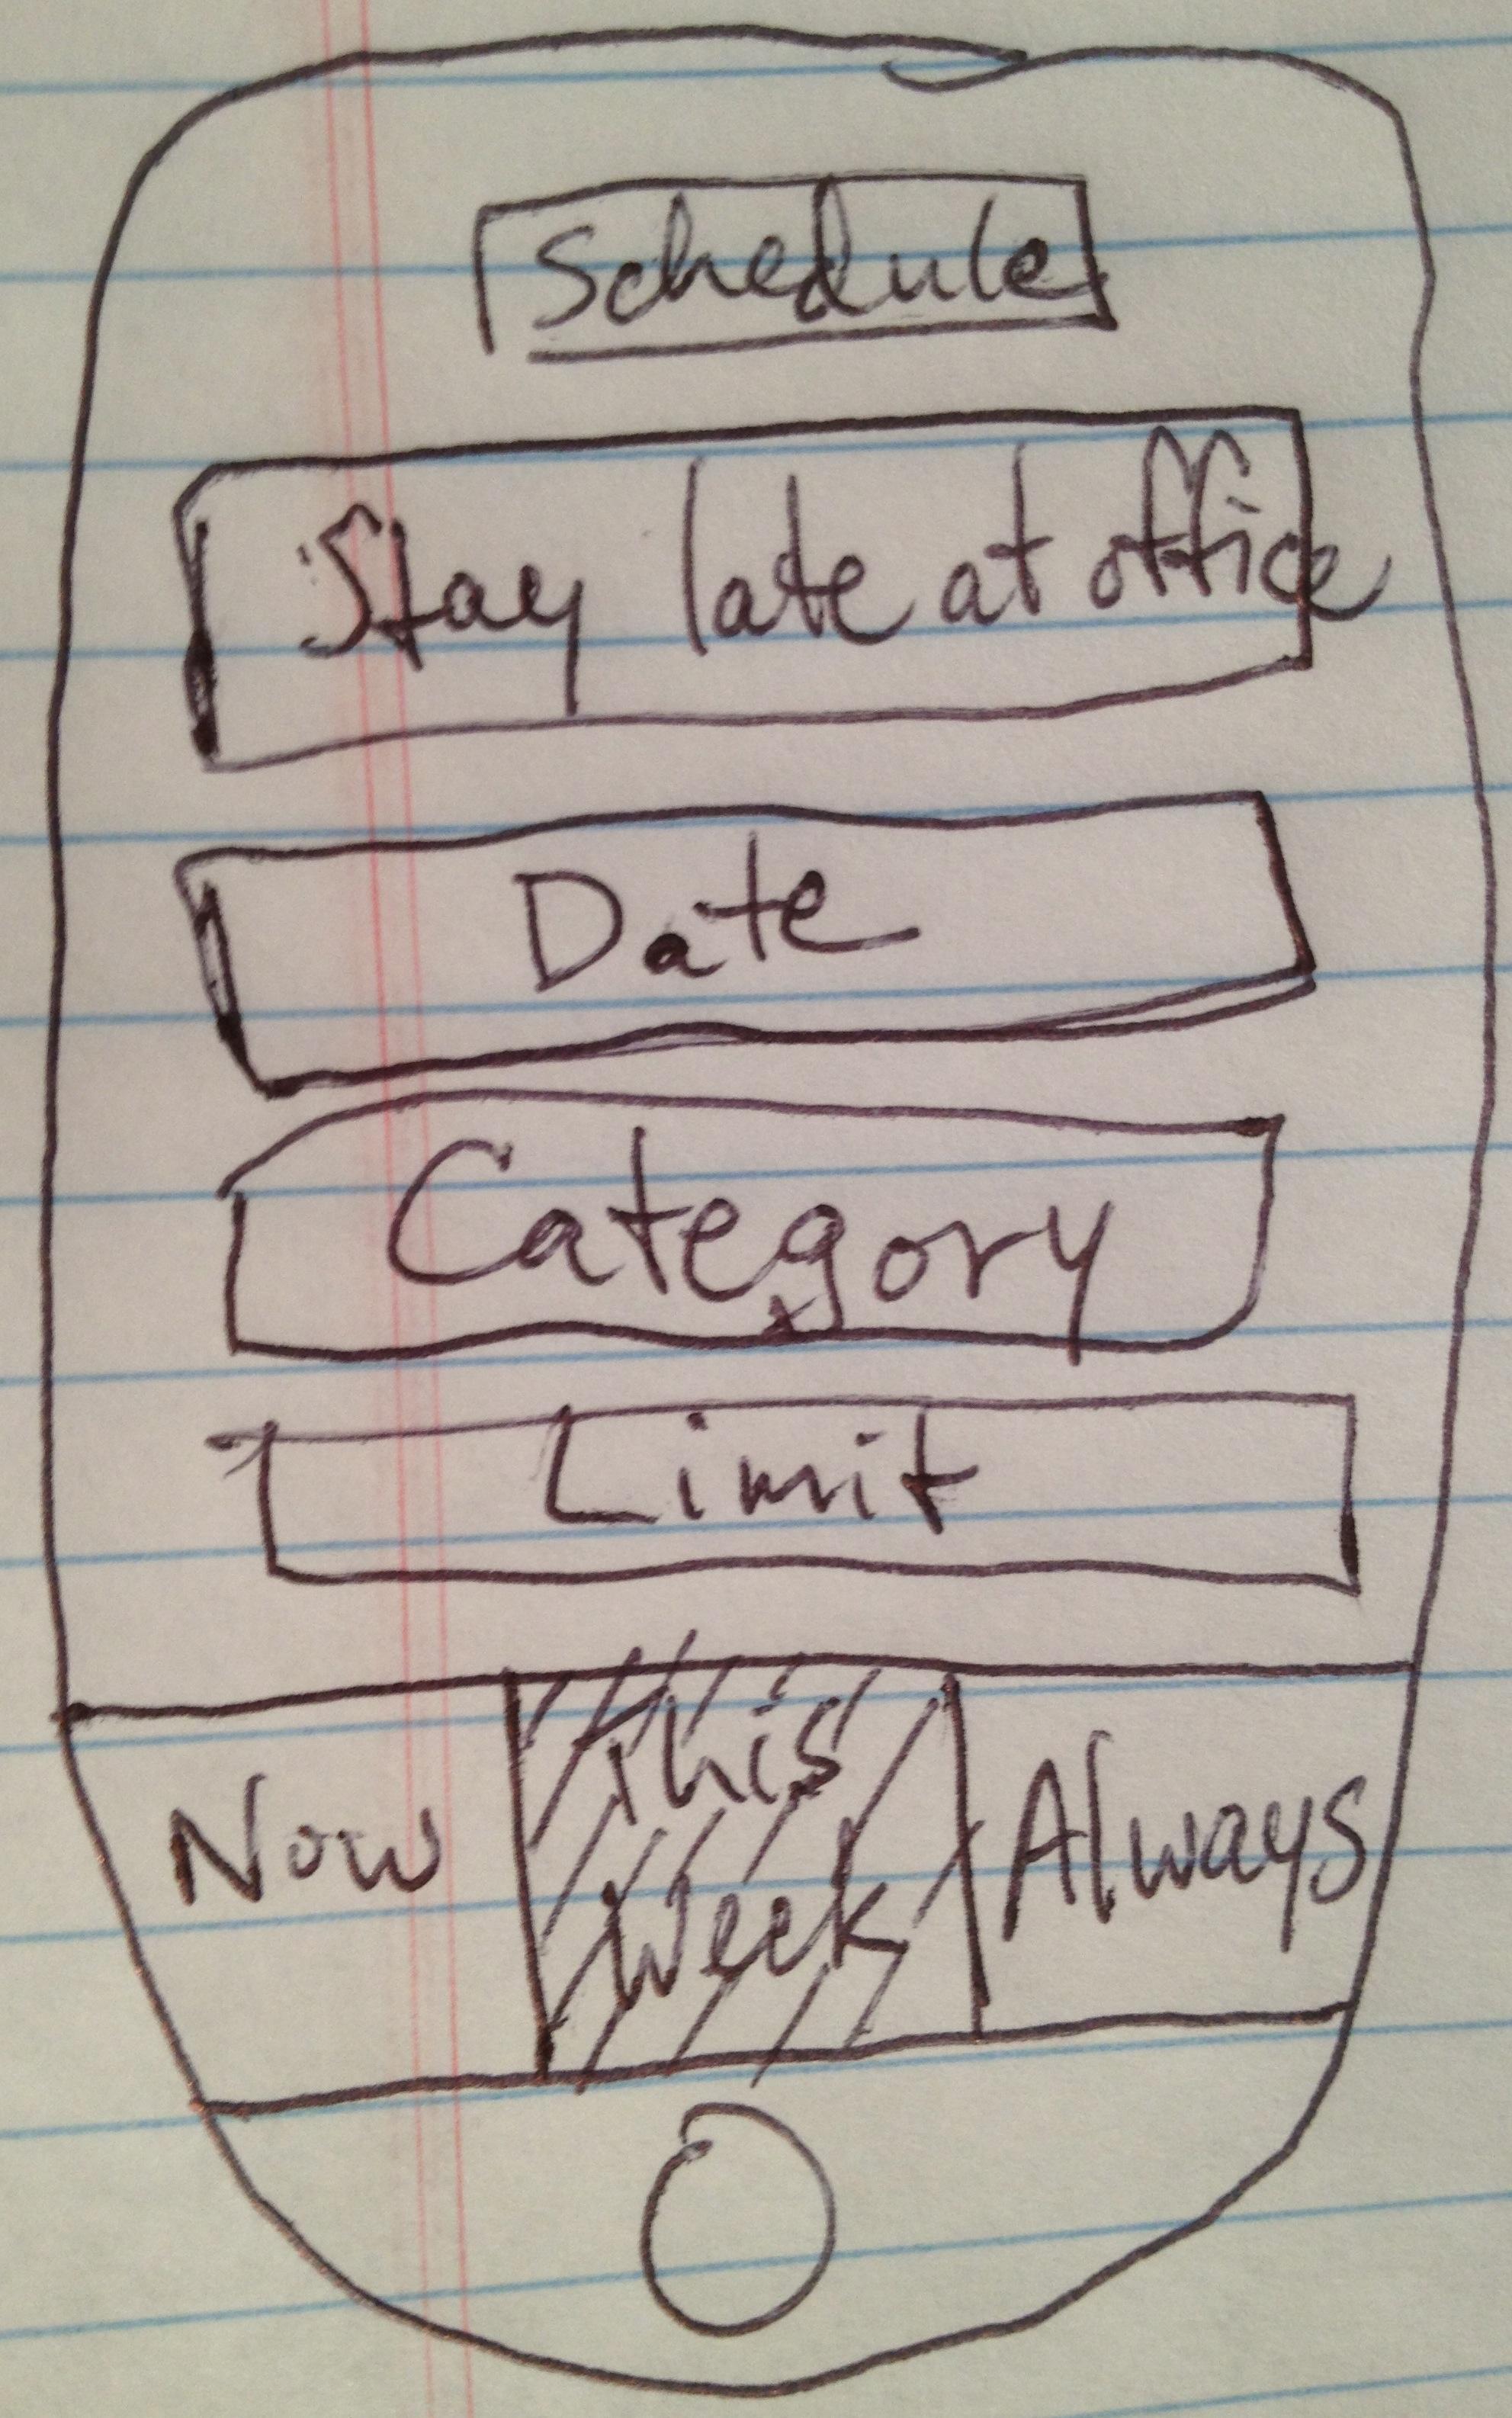 Schedule
Stay late at office
Date
Category
Limit
Now
This
Week
Always